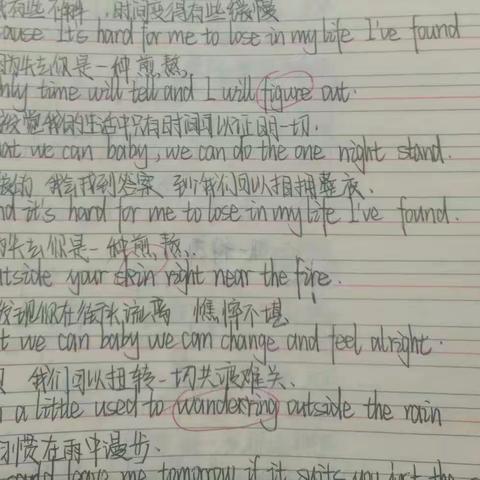 有些不解,时间变得有些缓慢
cause It's hard for me to lose in my life I've found
失去你是一种煎熬.
only time will tell and I will figure out.
我的生活中只有时间可以证明一切.
that we can baby, we can do the one night stand.
我会找到答案 到我们可以相拥整夜、
and it's hard for me to lose in my life I've found.
失去你是一种煎熬.
outside your skin right near the fire.
发现你在街头流离 憔悴不堪
that we can baby we can change and feel alright.
我们可以扭转一切共艰难关、
a little used to wanderring outside the rain
习惯在雨中漫步.
could leave me tomorrow if it suits you just the